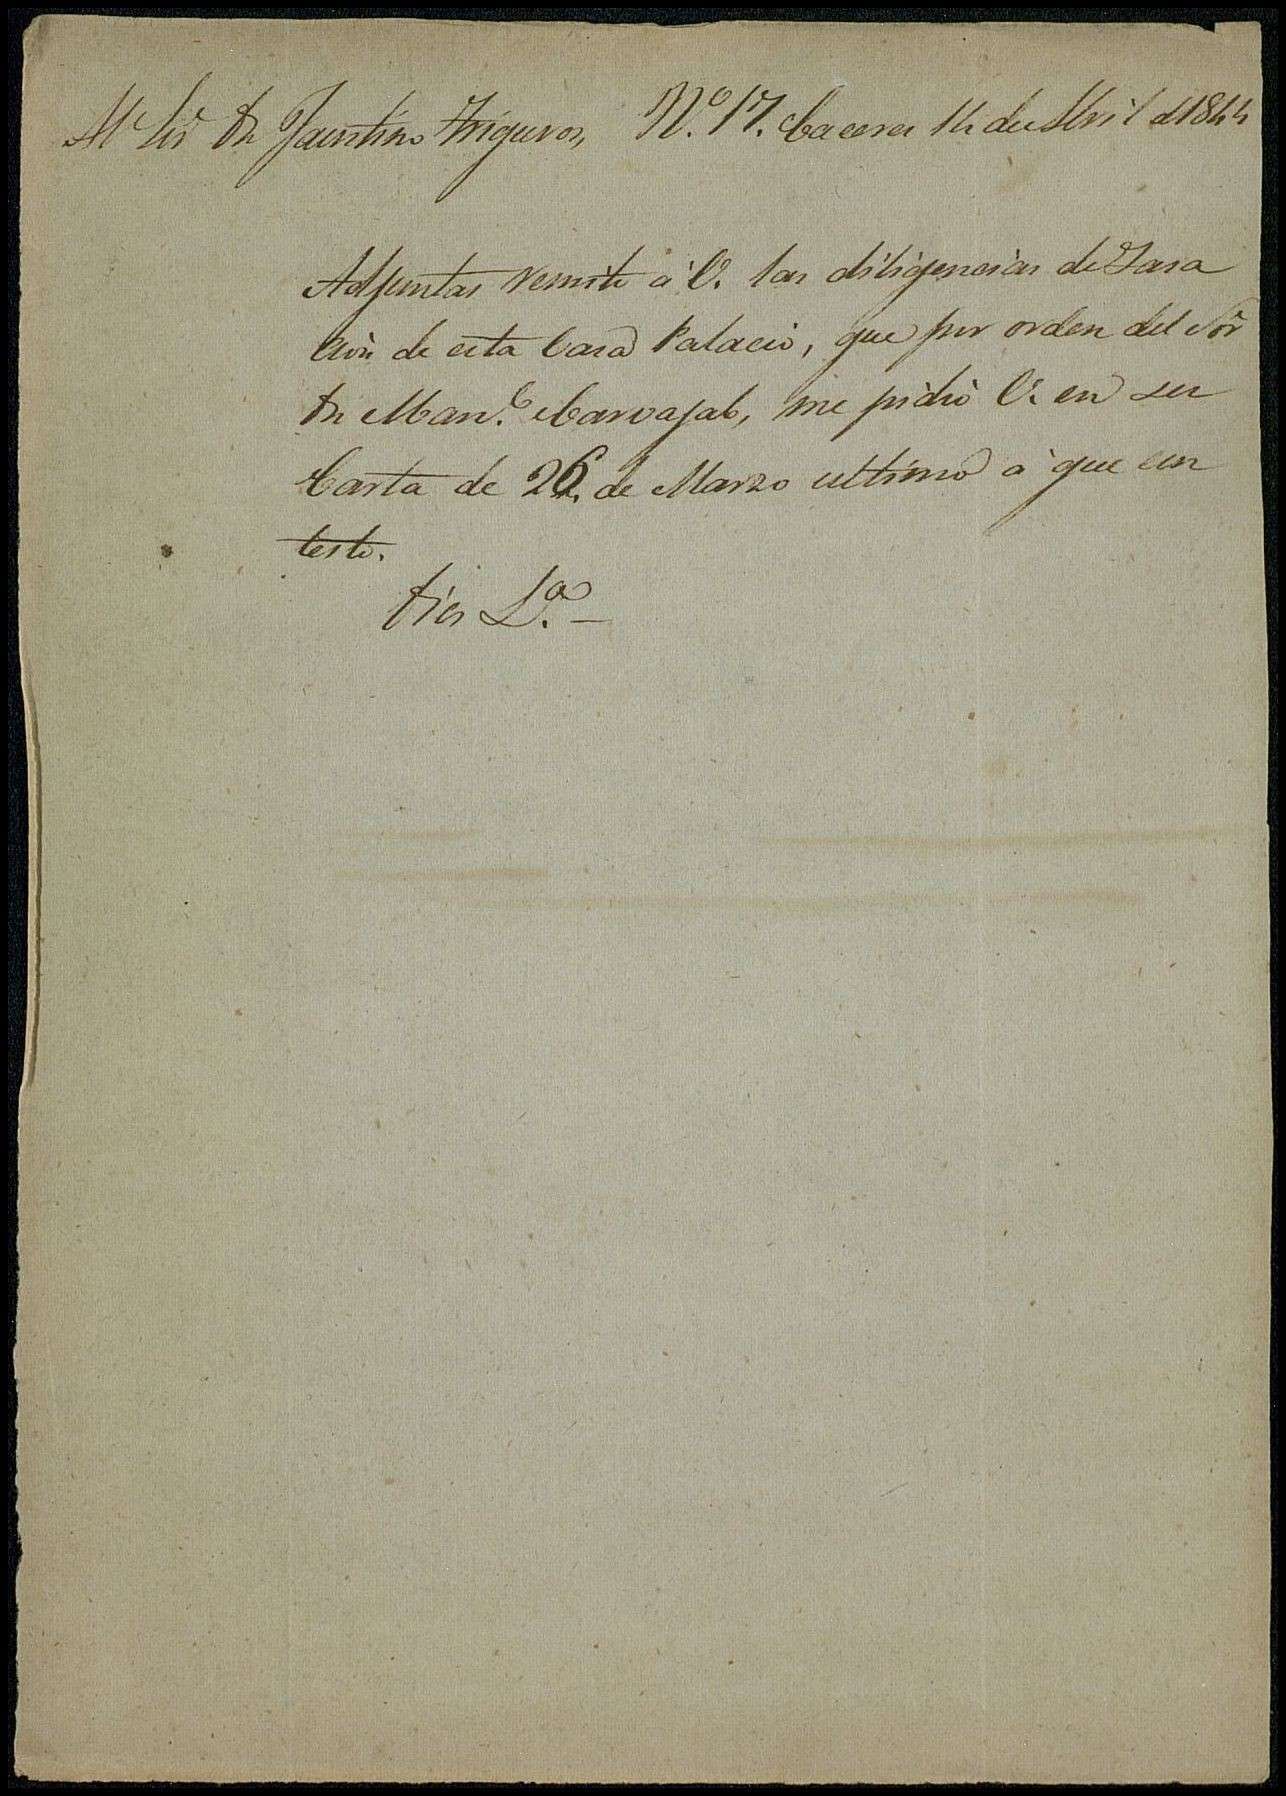 Al Sr. Dn Faustino Trigueros, Nº. 17. Caceres 14 de Abril d 1844
Adjuntas remito á V. las diligencias de Tasa
cion de esta Casa Palacio, que por orden del Sor
Dn Man.l Carvajal, me pidió V. en su
Carta de 26. de Marzo ultimo á que con
testo.
Dios Lª. —